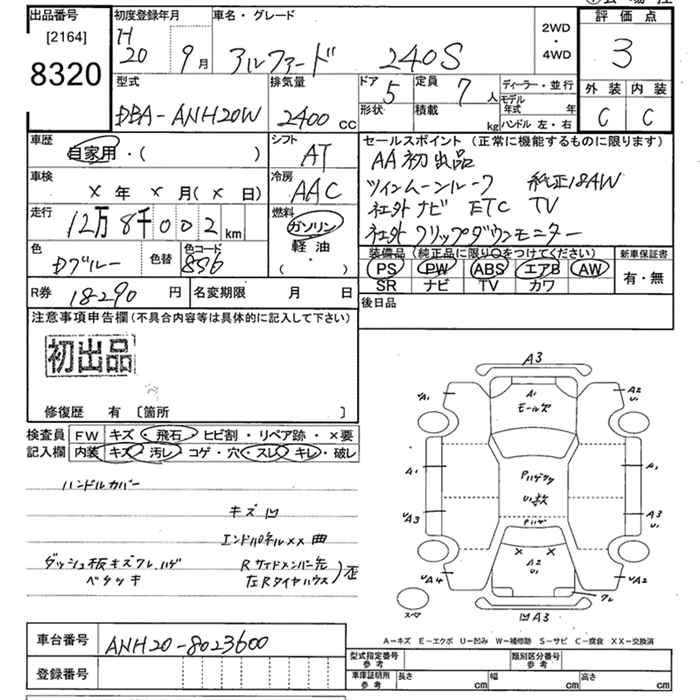 出品番号 初度登録年月 車名・グレード 2WD・4WD 評価点
[2164]
8320
H20 9月 アルファード 240S 3
型式 排気量 ドア 5 定員 7人 ディーラー・並行 外装 内装
DBA-ANH20W 2400cc 形状 積載 kg モデル年式 年 ハンドル 左・右 C C
車歴 シフト セールスポイント (正常に機能するものに限ります)
自家用・( ) AT AA初出品
車検 冷房 ツインムーンルーフ 純正18AW
× 年 × 月(× 日) AAC 社外ナビ ETC TV
走行 燃料 社外フリップダウンモニター
12万8千002km ガソリン
軽油
・( )
色 Dブルー 色替 色コード
装備品 (純正品に限り○をつけてください) 新車保証書
PS PW ABS エアB AW 有・無
SR ナビ TV カワ
R券 18290円 名変期限 月 日 後日品
注意事項申告欄(不具合内容等は具体的に記入して下さい)
初出品
修復歴 有 〔箇所 〕
検査員 FW キズ・飛石・ヒビ割・リペア跡・×要
記入欄 内装 キズ・汚レ・コゲ・穴・スレ・キレ・破レ
ハンドルカバー
キズ凹
エンドパネルXX曲
ダッシュ板キズスレ.ハゲ Rサイドメンバー先
ベタツキ 左Rタイヤハウス )歪
A3
A1 A1 A2
モール欠 U1
A1 Pハゲケ A1
U1数
A3 Pハゲ A3
U1
× ×
A4 A2 A2
U1
スレ
スペア 凹A3
A-キズ E-エクボ U-凹み W-補修跡 S-サビ C-腐食 XX-交換済
車台番号 ANH20-8023600
登録番号
型式指定番号 参考 類別区分番号 参考
車庫証明用 参考 長さ cm 幅 cm 高さ cm